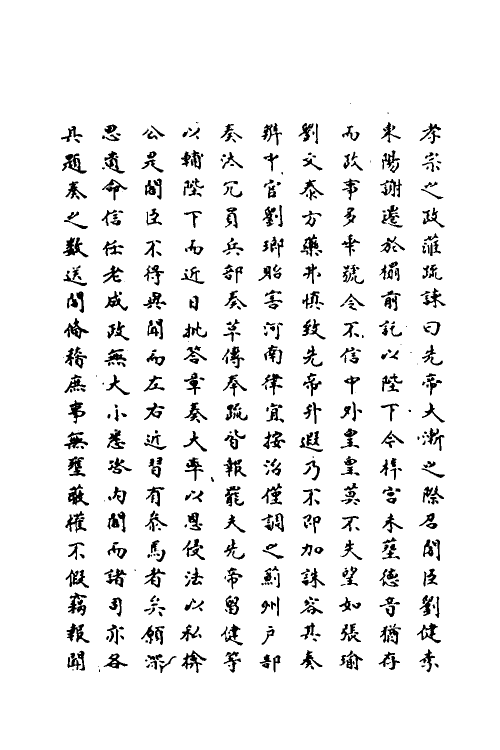 孝宗之政蕹疏諌曰先帝大漸之際召閣臣劉健李
東陽謝遷於榻前託以陛下今梓宫未塟徳音猶存
而政事多乖號令不信中外皇皇莫不失望如張瑜
劉文泰方藥弗慎致先帝升遐乃不即加誅容其奏
辨中官劉瑯貽害河南律宜按治僅調之薊州户部
奏汰冗員兵部奏革傳奉疏皆報罷夫先帝留健等
以輔陛下而近日批答章奏大率以恩侵法以私揜
公是閣臣不得與聞而左右近習有叅焉者矣願深
思遺命信任老成政無大小悉咨内閣而諸司亦各
具題奏之數送閣俻稽庶事無壅蔽權不假竊報聞